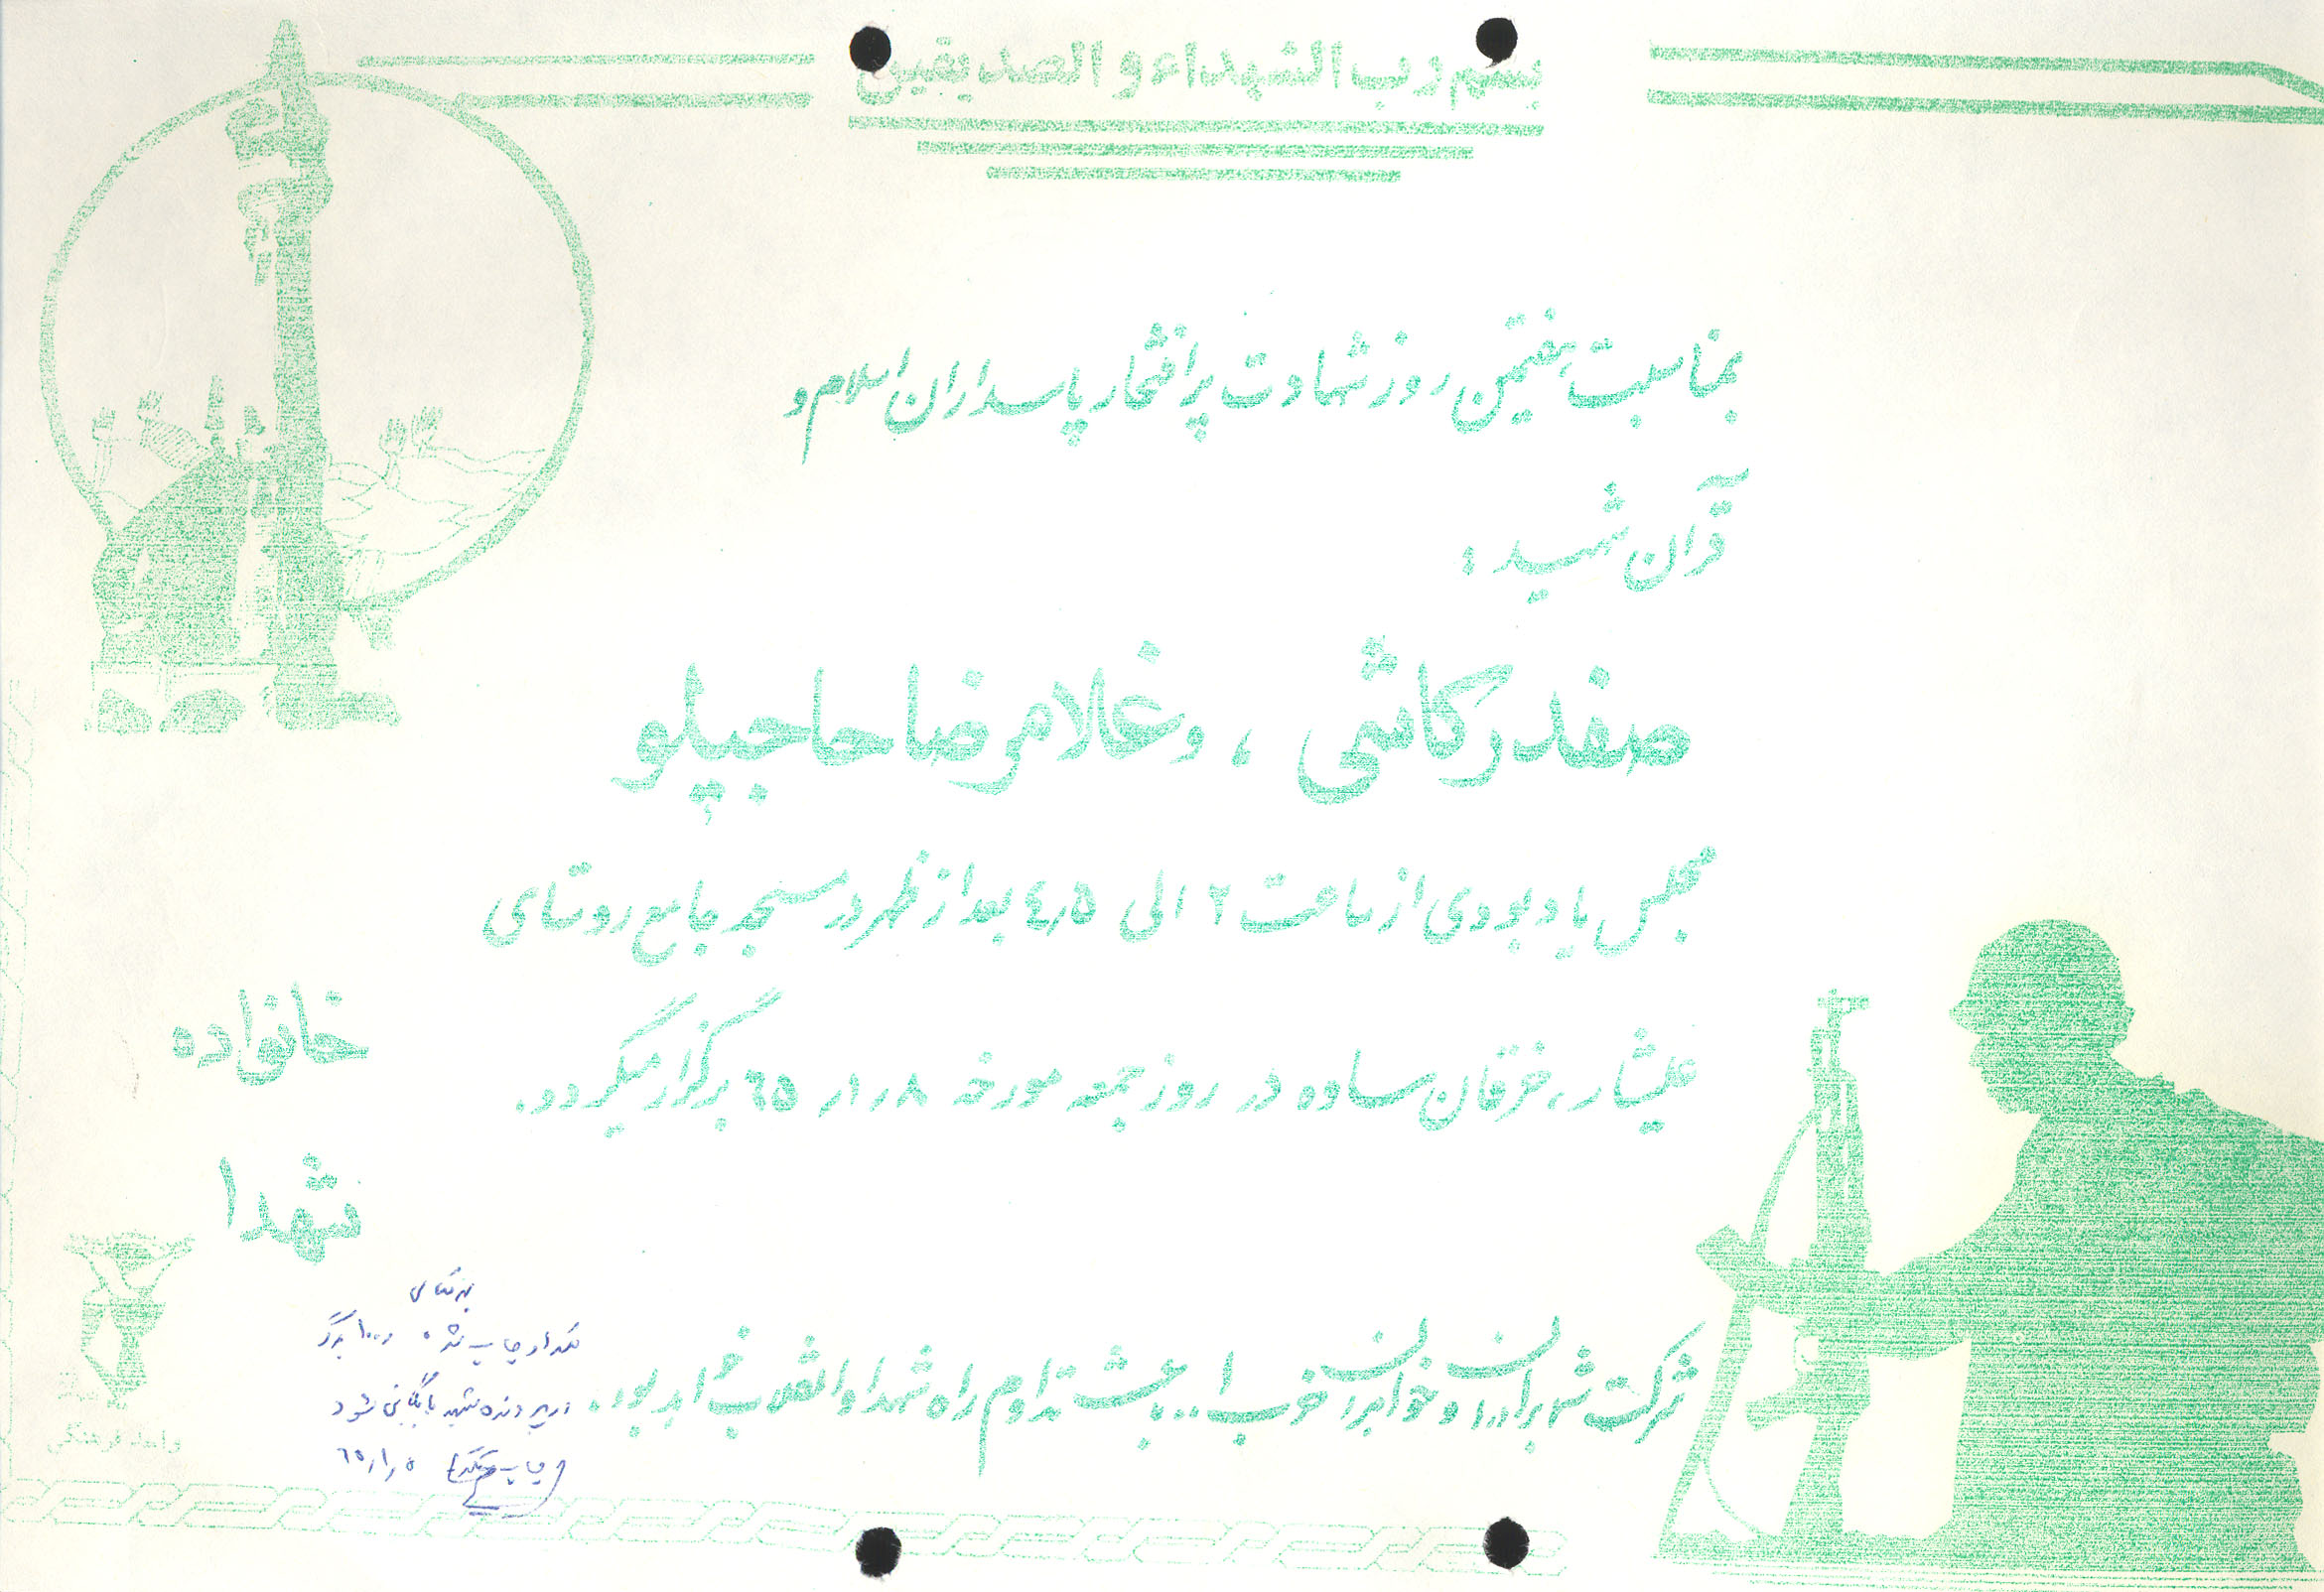 بسم رب الشهداء و الصدیقین
بمناسبت هفتمین روز شهادت پر افتخار پاسداران اسلام و
قرآن شهید :
صفدر کاشی ، و غلامرضا حاجیلو
مجلس یادبودی از ساعت ۲ الی ۴٫۵ بعد از ظهر در مسجد جامع روستای
علیشار، خرقان ساوه در روز جمعه مورخه ۶۵٫۱٫۸ برگزار میگردد.
خانواده
شهدا
شرکت شما برادران و خواهران حزب ا... باعث تداوم راه شهدا و انقلاب خواهد بود.
چاپ شد
در پرونده شهید بایگانی شود
۶۵٫۱٫۵
واحد فرهنگی